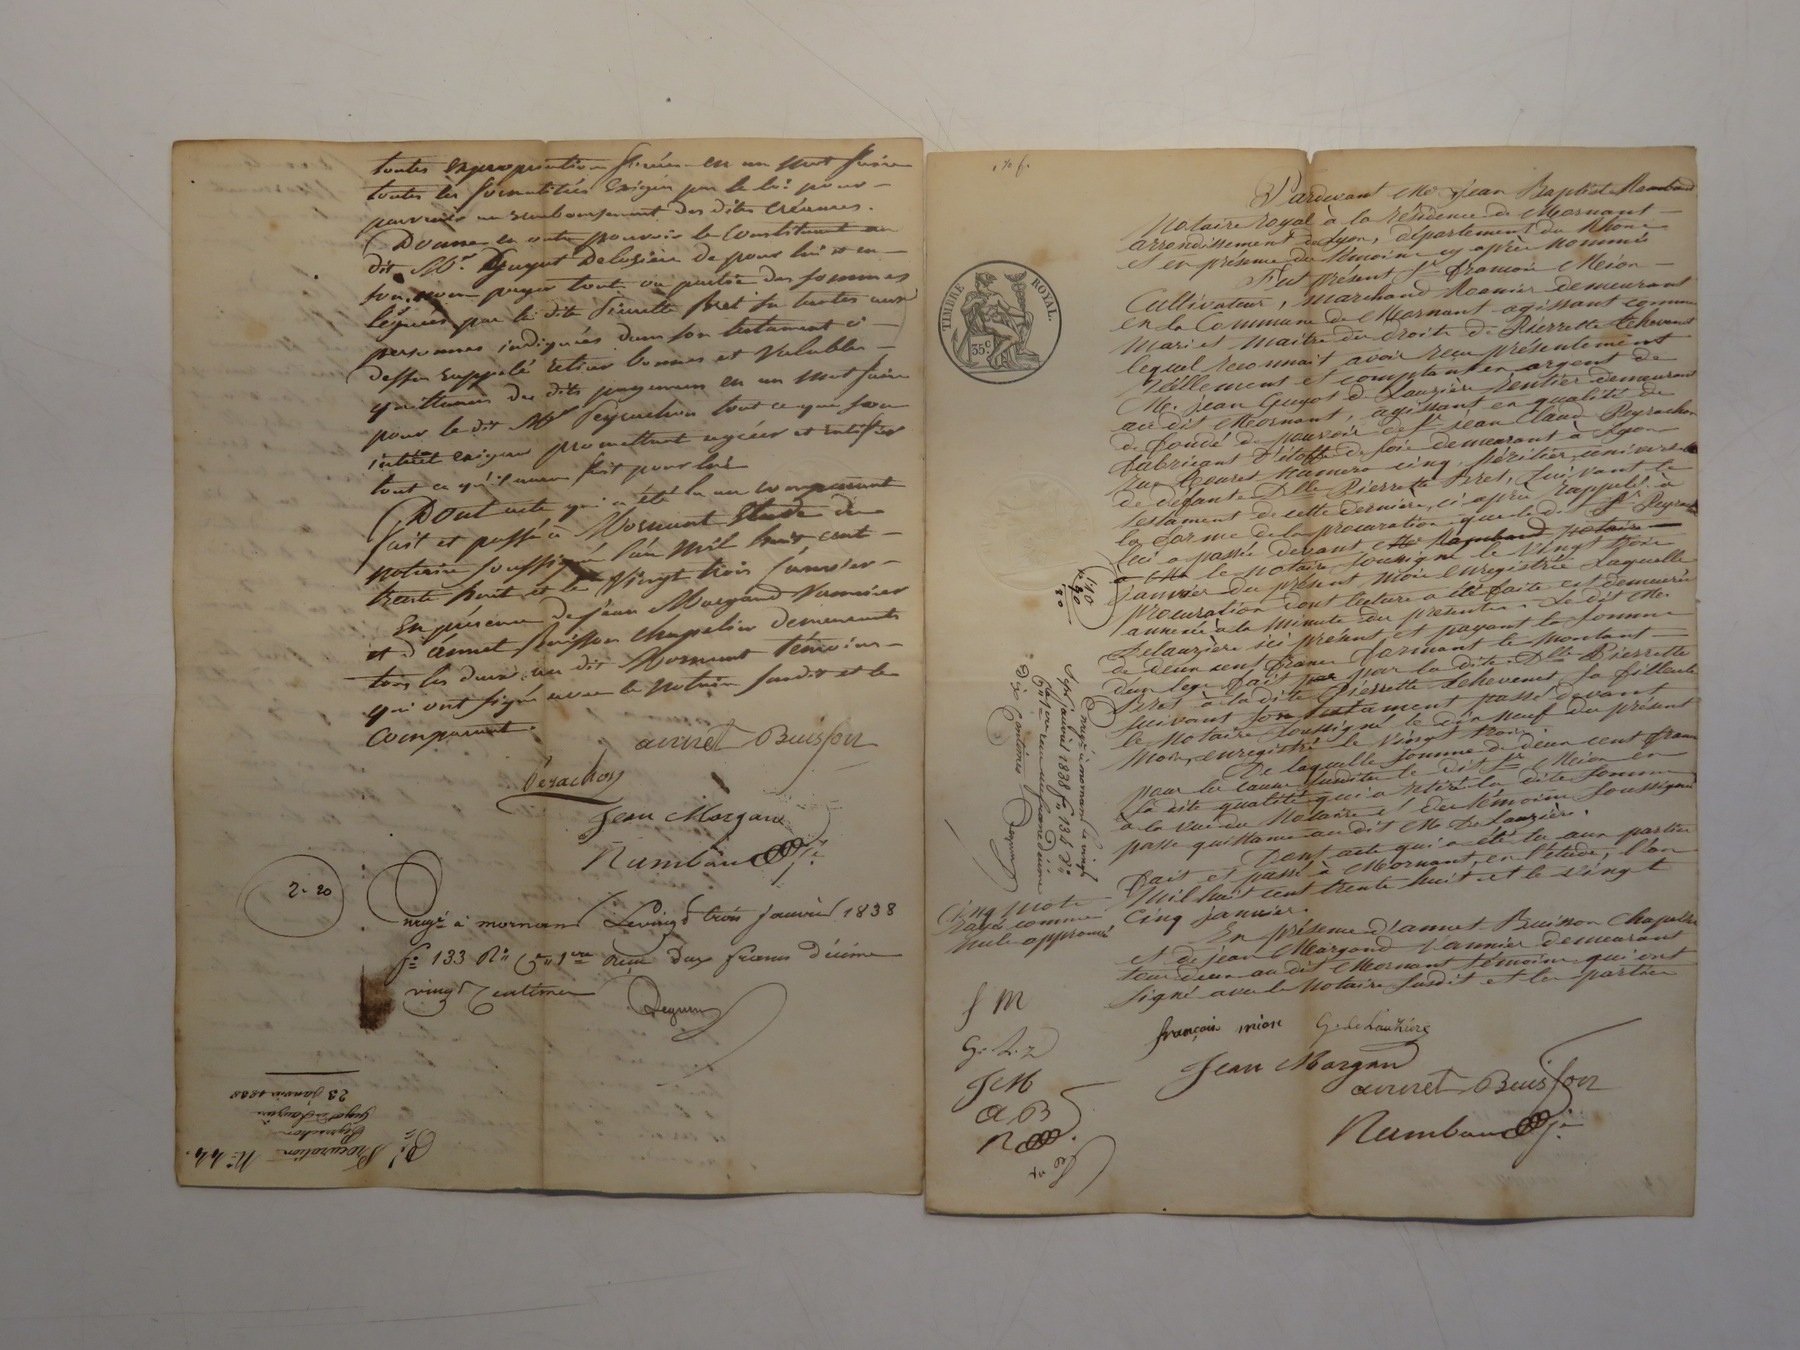 toutes expropriations forcées en un mot faire
toutes les formalités exigées par la loi pour
parvenir au remboursement des dites créances.
Donne en outre pouvoir le Constituant au
dit Mr. Guyot Delozière de pour lui et en
son nom payer tout ou partie des sommes
léguées par la dite Pierrette Bret
personnes indiquées dans son testament ci
dessus rappelé retirer bonnes et valables
quittances des dits payemens en un mot faire
pour le dit Mr Peyrachon tout ce que son
intérêt exigera promettant agréer et ratifier
tout ce qu'il aura fait pour lui
Dont acte qui a été lu au comparant
fait et passé à Mornant Etude du
notaire soussigné l'an Mil huit cent
trente huit et le Vingt trois Janvier
En présence de Jean Morgand Vannier
et d'annet Buisson chapelier demeurants
tous les deux au dit Mornant témoins
qui ont signé avec le Notaire susdit et le
comparant.
annet Buisson
Pérachon
Jean Morgand
Rambaud
2. 20
enregé à mornant Le vingt trois janvier 1838
fo 133 Ro Ce 1ere reçu deux francs décime
vingt Centimes
Deguin
Procuration No 44.
Peyrachon
à
Guyot de Lauzière
23 janvier 1838
Pardevant Me Jean Baptiste Rambaud
Notaire royal à la résidence de Mornant
arrondissement de Lyon, département du Rhône
et en présence des témoins cy après nommés
Fut présent Sr françois Mion
Cultivateur, marchand demeurant
en la Commune de Mornant agissant comme
mari et maitre des droits de Pierrette Thevenet
lequel reconnait avoir reçu présentement
réellement et comptant en argent de
Me. jean Guyot de Lauzière rentier demeurant
au dit Mornant, agissant en qualité de
de fondé de pouvoir de Sr jean Claude Peyrachon
fabricant d'étoffe de soie demeurant à Lyon
rue numero cinq, héritier universel
de défunte Dlle Pierrette Bret, suivant le
testament de cette dernière, ci après rappelé à
la forme de la procuration que le dit Sr Peyrachon
lui a passée devant Me Rambaud notaire
à le notaire soussigné le vingt trois
janvier du présent mois enregistrée laquelle
procuration dont lecture a été faite est demeurée
annexée à la minute des présentes. Le dit Me.
Delauzière ici présent et payant la somme
de deux cent francs formant le montant
d'un legs fait par la dite Dlle Pierrette
Bret à la dite Pierrette Thevenet sa filleule
suivant son testament passé devant
le notaire soussigné le dix neuf du présent
mois, enregistré le vingt trois
De laquelle somme de deux cent francs
pour la cause susdite le dit Sr Mion en
la dite qualité qui a retiré la dite somme
à la vue du Notaire et des témoins soussignés
passe quittance au dit Me De Lauzière.
Dont acte qui a été lu aux parties
fait et passé à Mornant, en l'étude, l'an
mil huit cent trente huit et le vingt
cinq janvier.
En présence d'annet Buisson Chapelier
et de jean Morgand Vannier demeurant
tous deux au dit Mornant témoins qui ont
signé avec le Notaire susdit et les parties
françois mion G. de Lauzière
Jean Morgand
annet Buisson
Rambaud
TIMBRE ROYAL.
35 c.
1.10
20
Enregé à mornant le vingt
Sept janvier 1838 fo 134
reçu un franc décime
dix centimes
Deguin
Cinq mots
rayés comme
nuls approuvés
f M
G. L. z
J M
a B
R